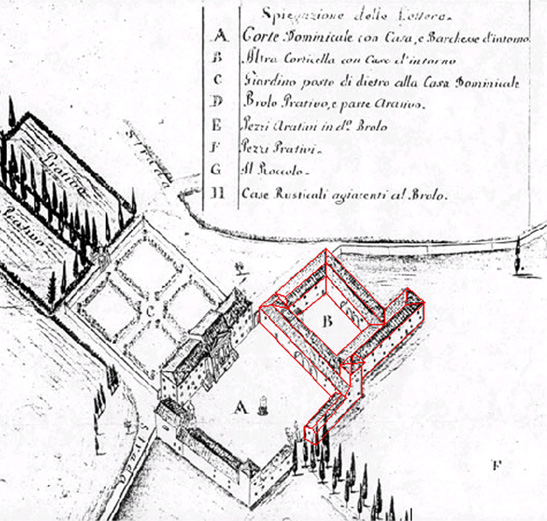 Spiegazione delle Lettere.
A Corte Dominicale con Casa, e Barchesse d'intorno.
B Altra Corticella con Case d'intorno
C Giardino posto di dietro alla Casa Dominicale
D Brolo Prativo, e parte Arativo.
E Pezzi Arativi in d.º Brolo
F Pezzi Prativi.
G Al Roccolo.
H Case Rusticali agiacenti al Brolo.
Strada
Prativo
Prativo
C
B
A
F
Strada